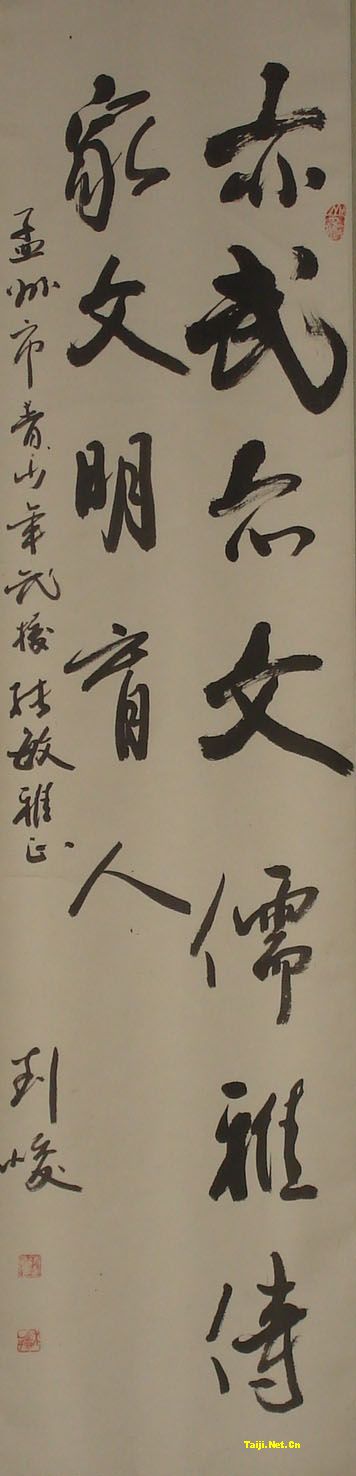 亦武亦文儒雅傳
家文明育人
孟州市青少年武校 敏雅正
刘
Taiji.Net.Cn